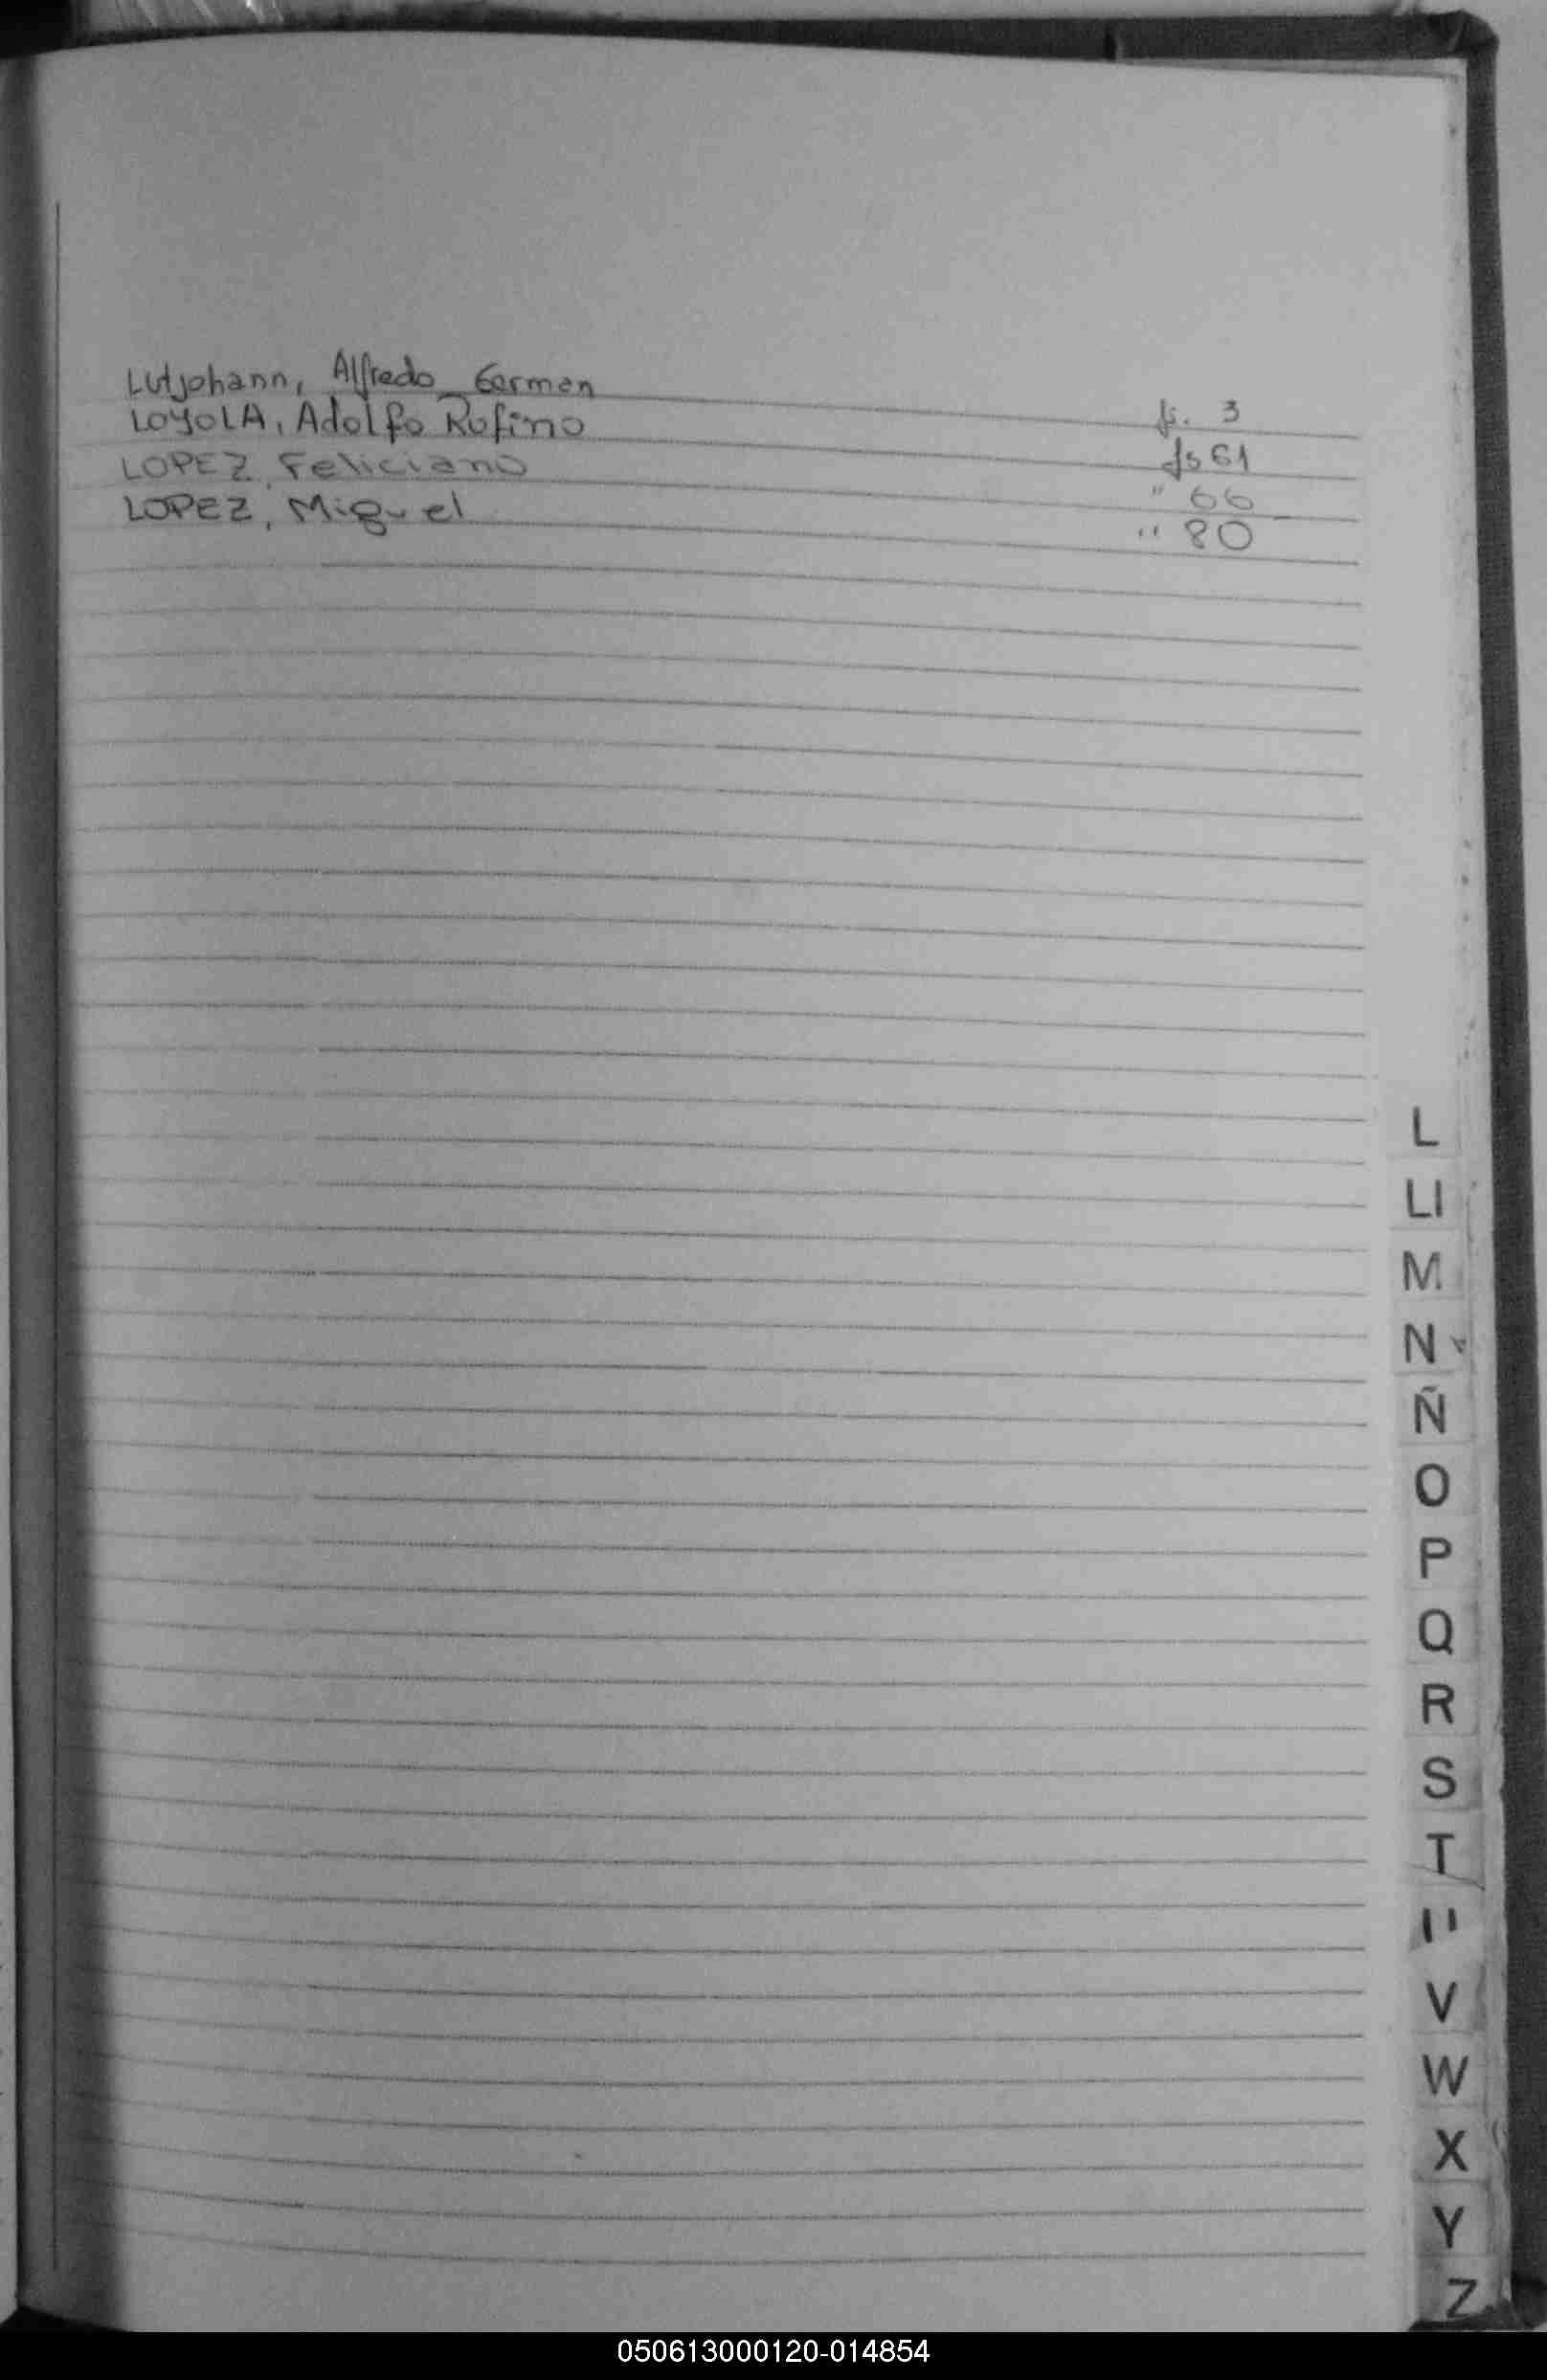 Lutjohann, Alfredo German fs. 3
LOYOLA, Adolfo Rufino fs 61
LOPEZ, Feliciano " 66
LOPEZ, Miguel " 80
L
Ll
M
N
Ñ
O
P
Q
R
S
T
U
V
W
X
Y
Z
050613000120-014854